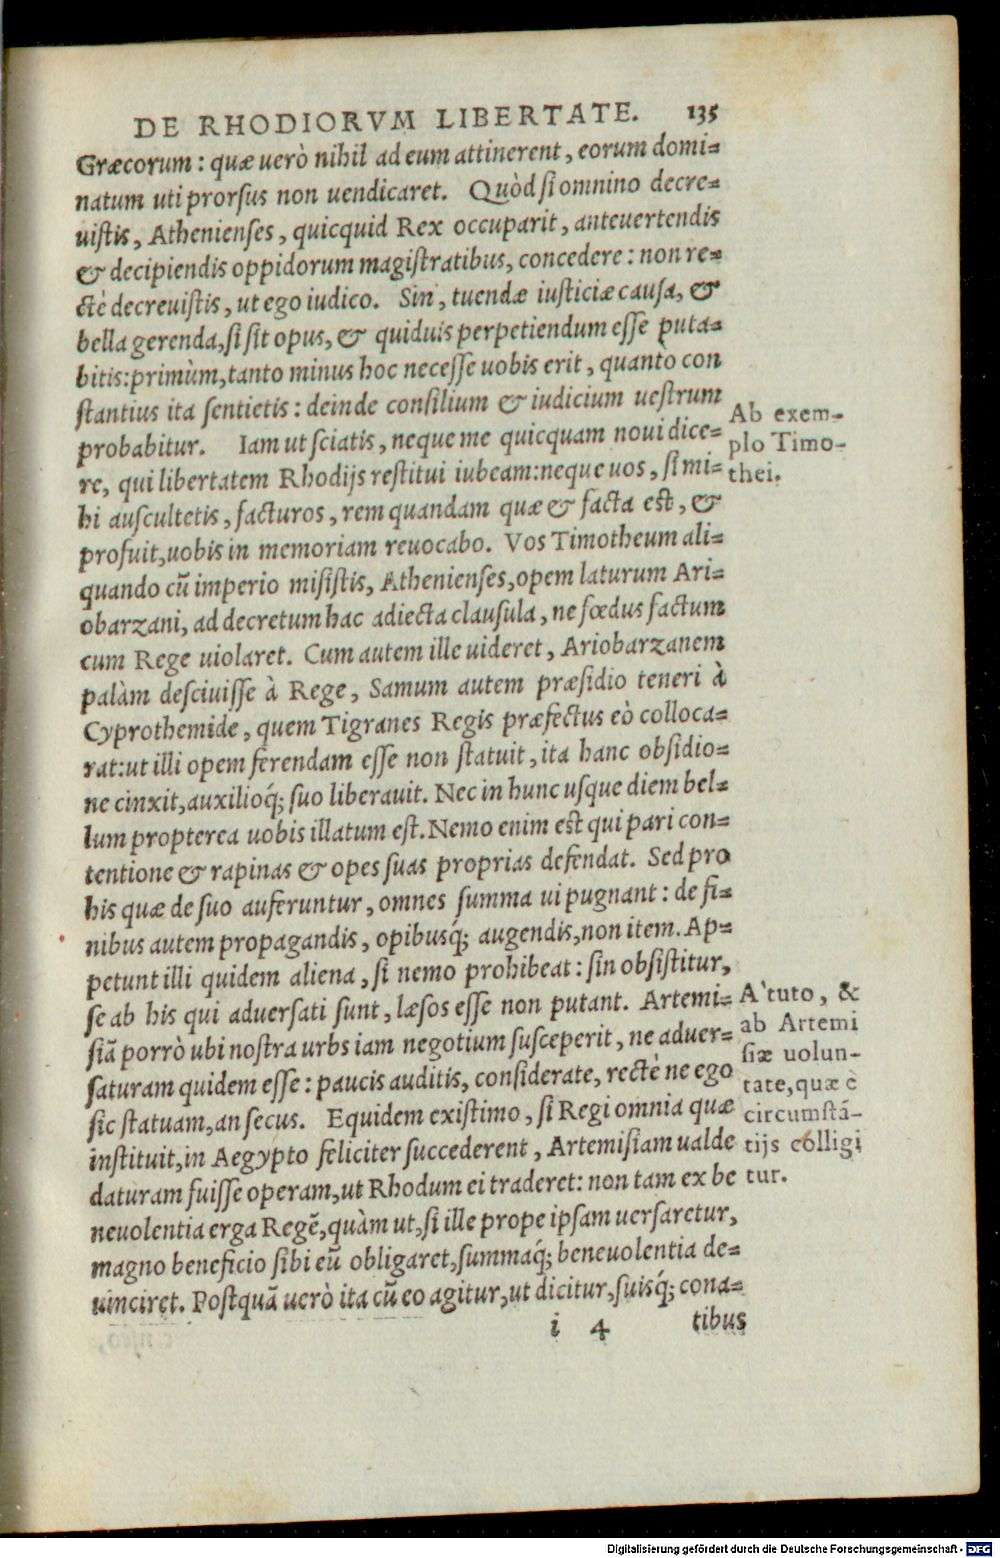 DE RHODIORVM LIBERTATE. 135
Græcorum: quæ uerò nihil ad eum attinerent, eorum domi=
natum uti prorsus non uendicaret. Quòd si omnino decre=
uistis, Athenienses, quicquid Rex occuparit, anteuertendis
& decipiendis oppidorum magistratibus, concedere: non re=
ctè decreuistis, ut ego iudico. Sin, tuendæ iusticiæ causa, &
bella gerenda, si sit opus, & quiduis perpetiendum esse puta=
bitis: primùm, tanto minus hoc necesse uobis erit, quanto con
stantius ita sentietis: deinde consilium & iudicium uestrum
probabitur. Iam ut sciatis, neque me quicquam noui dice=
re, qui libertatem Rhodijs restitui iubeam: neque uos, si mi=
hi auscultetis, facturos, rem quandam quæ & facta est, &
profuit, uobis in memoriam reuocabo. Vos Timotheum ali=
quando cũ imperio misistis, Athenienses, opem laturum Ari=
obarzani, ad decretum hac adiecta clausula, ne fœdus factum
cum Rege uiolaret. Cum autem ille uideret, Ariobarzanem
palàm desciuisse à Rege, Samum autem præsidio teneri à
Cyprothemide, quem Tigranes Regis præfectus eò colloca=
rat: ut illi opem ferendam esse non statuit, ita hanc obsidio=
ne cinxit, auxilioq́; suo liberauit. Nec in hunc usque diem bel=
lum propterea uobis illatum est. Nemo enim est qui pari con=
tentione & rapinas & opes suas proprias defendat. Sed pro
his quæ de suo auferuntur, omnes summa ui pugnant: de fi=
nibus autem propagandis, opibusq́; augendis, non item. Ap=
petunt illi quidem aliena, si nemo prohibeat: sin obsistitur,
se ab his qui aduersati sunt, læsos esse non putant. Artemi=
siã porrò ubi nostra urbs iam negotium susceperit, ne aduer=
saturam quidem esse: paucis auditis, considerate, rectè ne ego
sic statuam, an secus. Equidem existimo, si Regi omnia quæ
instituit, in Aegypto feliciter succederent, Artemisiam ualde
daturam fuisse operam, ut Rhodum ei traderet: non tam ex be
neuolentia erga Regẽ, quàm ut, si ille prope ipsam uersaretur,
magno beneficio sibi eũ obligaret, summaq́; beneuolentia de=
uinciret. Postquã uerò ita cũ eo agitur, ut dicitur, suisq́; cona=
i 4 tibus
Ab exem-
plo Timo-
thei.
A' tuto, &
ab Artemi
siæ uolun-
tate, quæ è
circumstã-
tijs colligi
tur.
Digitalisierung gefördert durch die Deutsche Forschungsgemeinschaft - DFG